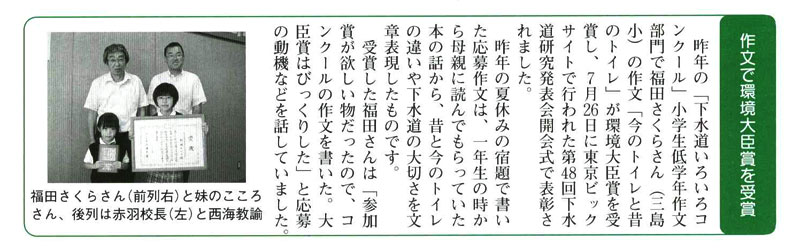 作文で環境大臣賞を受賞
昨年の「下水道いろいろコ
ンクール」小学生低学年作文
部門で福田さくらさん（三島
小）の作文「今のトイレと昔
のトイレ」が環境大臣賞を受
賞し、7月26日に東京ビック
サイトで行われた第48回下水
道研究発表会開会式で表彰さ
れました。
昨年の夏休みの宿題で書い
た応募作文は、一年生の時か
ら母親に読んでもらっていた
本の話から、昔と今のトイレ
の違いや下水道の大切さを文
章表現したものです。
受賞した福田さんは「参加
賞が欲しい物だったので、コ
ンクールの作文を書いた。大
臣賞はびっくりした」と応募
の動機などを話していました。
福田さくらさん（前列右）と妹のこころ
さん、後列は赤羽校長（左）と西海教諭